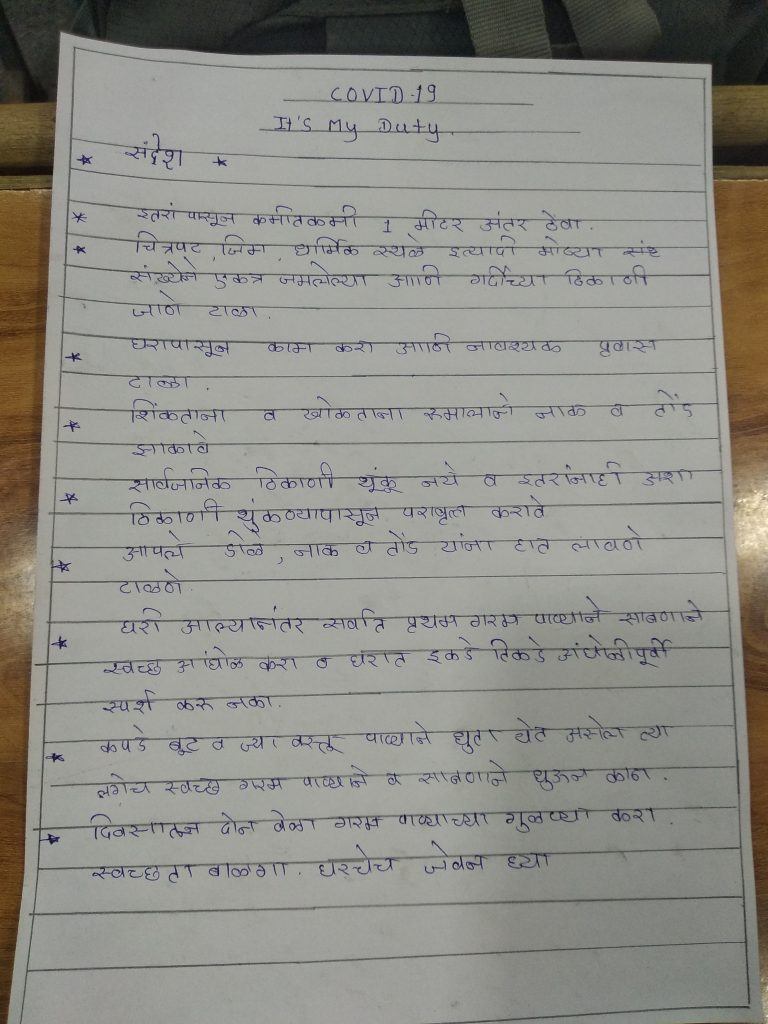 COVID-19
It's My Duty.
* संदेश *
* इतरांपासून कमीतकमी 1 मीटर अंतर ठेवा.
* चित्रपट, जिम, धार्मिक स्थळे इत्यादी मोठ्या संख
संख्येने एकत्र जमलेल्या आणि गर्दीच्या ठिकाणी
जाणे टाळा.
* घरापासून काम करा आणि नावश्यक प्रवास
टाळा.
* शिंकताना व खोकताना रुमालाने नाक व तोंड
झाकावे
* सार्वजनिक ठिकाणी थुंकू नये व इतरांनाही अशा
ठिकाणी थुंकण्यापासून परावृत्त करावे
* आपले डोळे, नाक व तोंड यांना हात लावणे
टाळणे.
* घरी आल्यानंतर सर्वात प्रथम गरम पाण्याने साबणाने
स्वच्छ आंघोळ करा व घरात इकडे तिकडे अंघोळीपूर्वी
स्पर्श करू नका.
* कपडे बूट व ज्या वस्तू पाण्याने धुता येत असेल त्या
लगेच स्वच्छ गरम पाण्याने व साबणाने धुऊन काढा.
* दिवसातून दोन वेळा गरम पाण्याच्या गुळण्या करा.
स्वच्छता बाळगा. घरचेच जेवन घ्या